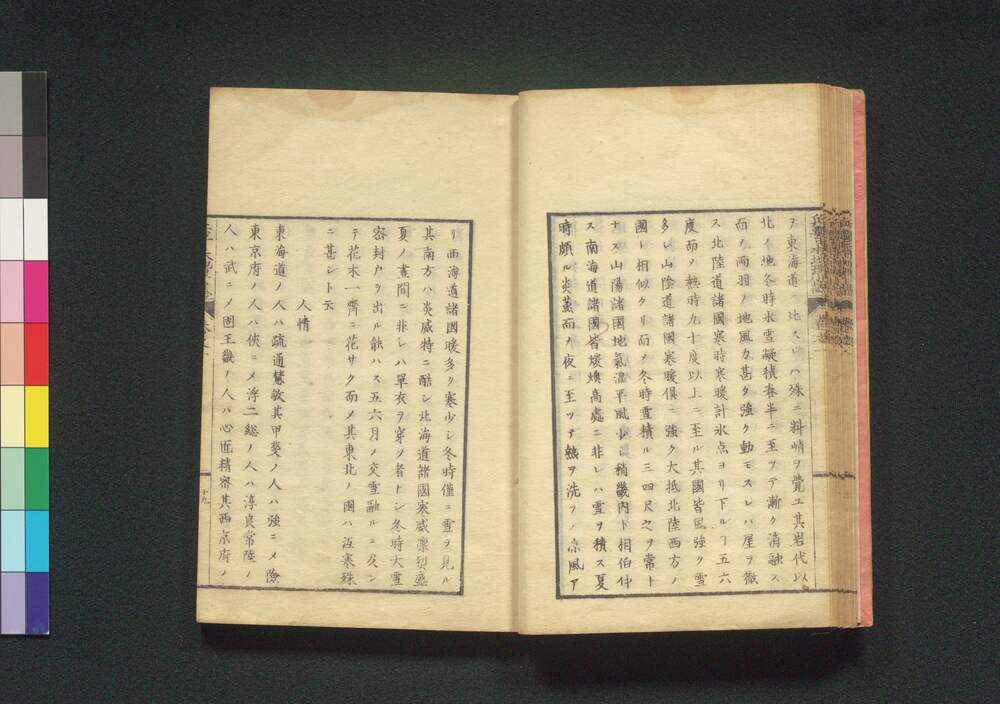 ヲ東海道ニ比スレハ殊ニ料峭ヲ覺エ其岩代以
北ノ漁冬時氷雪凝積春半ニ至ツテ漸ク消融ス
而メ両羽ノ地風力甚タ強ク動モスレハ屋ヲ徹
ス北陸道諸國寒時寒暖計氷点ヨリ下ルヿ五六
度而メ熱時九十度以上ニ至ル其國皆風強ク雪
多シ山陰道諸國寒暖倶ニ強ク大抵北陸西方ノ
國ト相似タリ而メ冬時雪積ル三四尺之ヲ常ト
ナス山陽諸國地氣温平風少シ稍畿内ト相伯仲
ス南海道諸國皆煖燠高處ニ非レハ雪ヲ積ス夏
時頗ル炎蒸而メ夜ニ至ツテ熱ヲ洗フノ凉風ア
リ西海道諸國暖多ク寒少シ冬時僅ニ雪ヲ見ル
其南方ハ炎威特ニ酷シ北海道諸國寒威凛烈盛
夏ノ晝間ニ非レハ單衣ヲ穿ツ者ナシ冬時大雪
密封戸ヲ出ル能ハス五六月ノ交雪融ルニ及ン
テ花木一齊ニ花サク而メ其東北ノ國ハ沍寒殊
ニ甚シト云
人情
東海道ノ人ハ疏通慧敏其甲斐ノ人ハ強ニメ険
東京府ノ人ハ侠ニメ浮二総ノ人ハ淳良常陸ノ
人ハ武ニメ固王畿ノ人ハ心匠精密其西京府ノ
十九